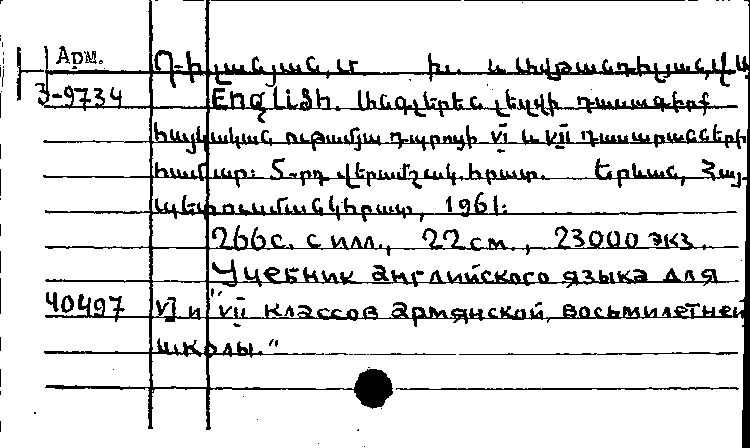 Арм.
3-9734
English. Անգլերեն լեզվի դասագիրք
հայկական ութամյա դպրոցի VI և VII դասարանների
համար։ 5-րդ վերամշակ. հրատ. Երևան, Հայ-
պետուսմանկհրատ, 1961։
266с. с илл., 22см., 23000 экз.
"Учебник английского языка для
40497 VI и VII классов армянской восьмилетней
школы."